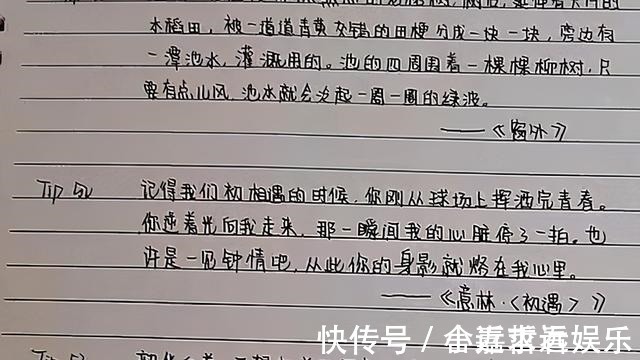 水稻田，被一道道青黄交错的田梗分成一块一块，旁边有
一潭池水，灌溉用的。池的四周围着一棵棵柳树，只
要有点儿风，池水就会泛起一圈一圈的绿波。
——《窗外》
Tip 52 记得我们初相遇的时候，你刚从球场上挥洒完青春。
你逆着光向我走来，那一瞬间我的心脏停了一拍。也
许是一见钟情吧，从此你的身影就烙在我心里。
——《意林·<初遇>》
快传号／
娱乐